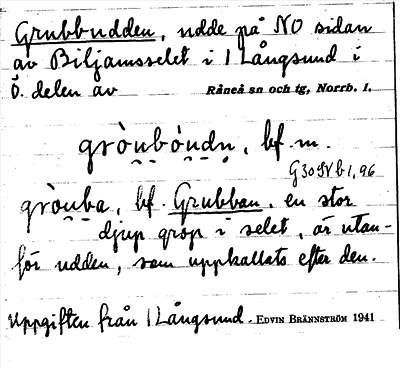 Grubbudden, udde på NO sidan
av Biljamsselet i 1 Långsund i
Ö. delen av Råneå sn och tg, Norrb. l.
gròu̯bóu̯dn̥, bf. m.
G 30 SV b 1, 96
gròu̯ba, bf. Grubban, en stor
djup grop i selet, är utan-
för udden, som uppkallats efter den.
Uppgiften från 1 Långsund. EDVIN BRÄNNSTRÖM 1941